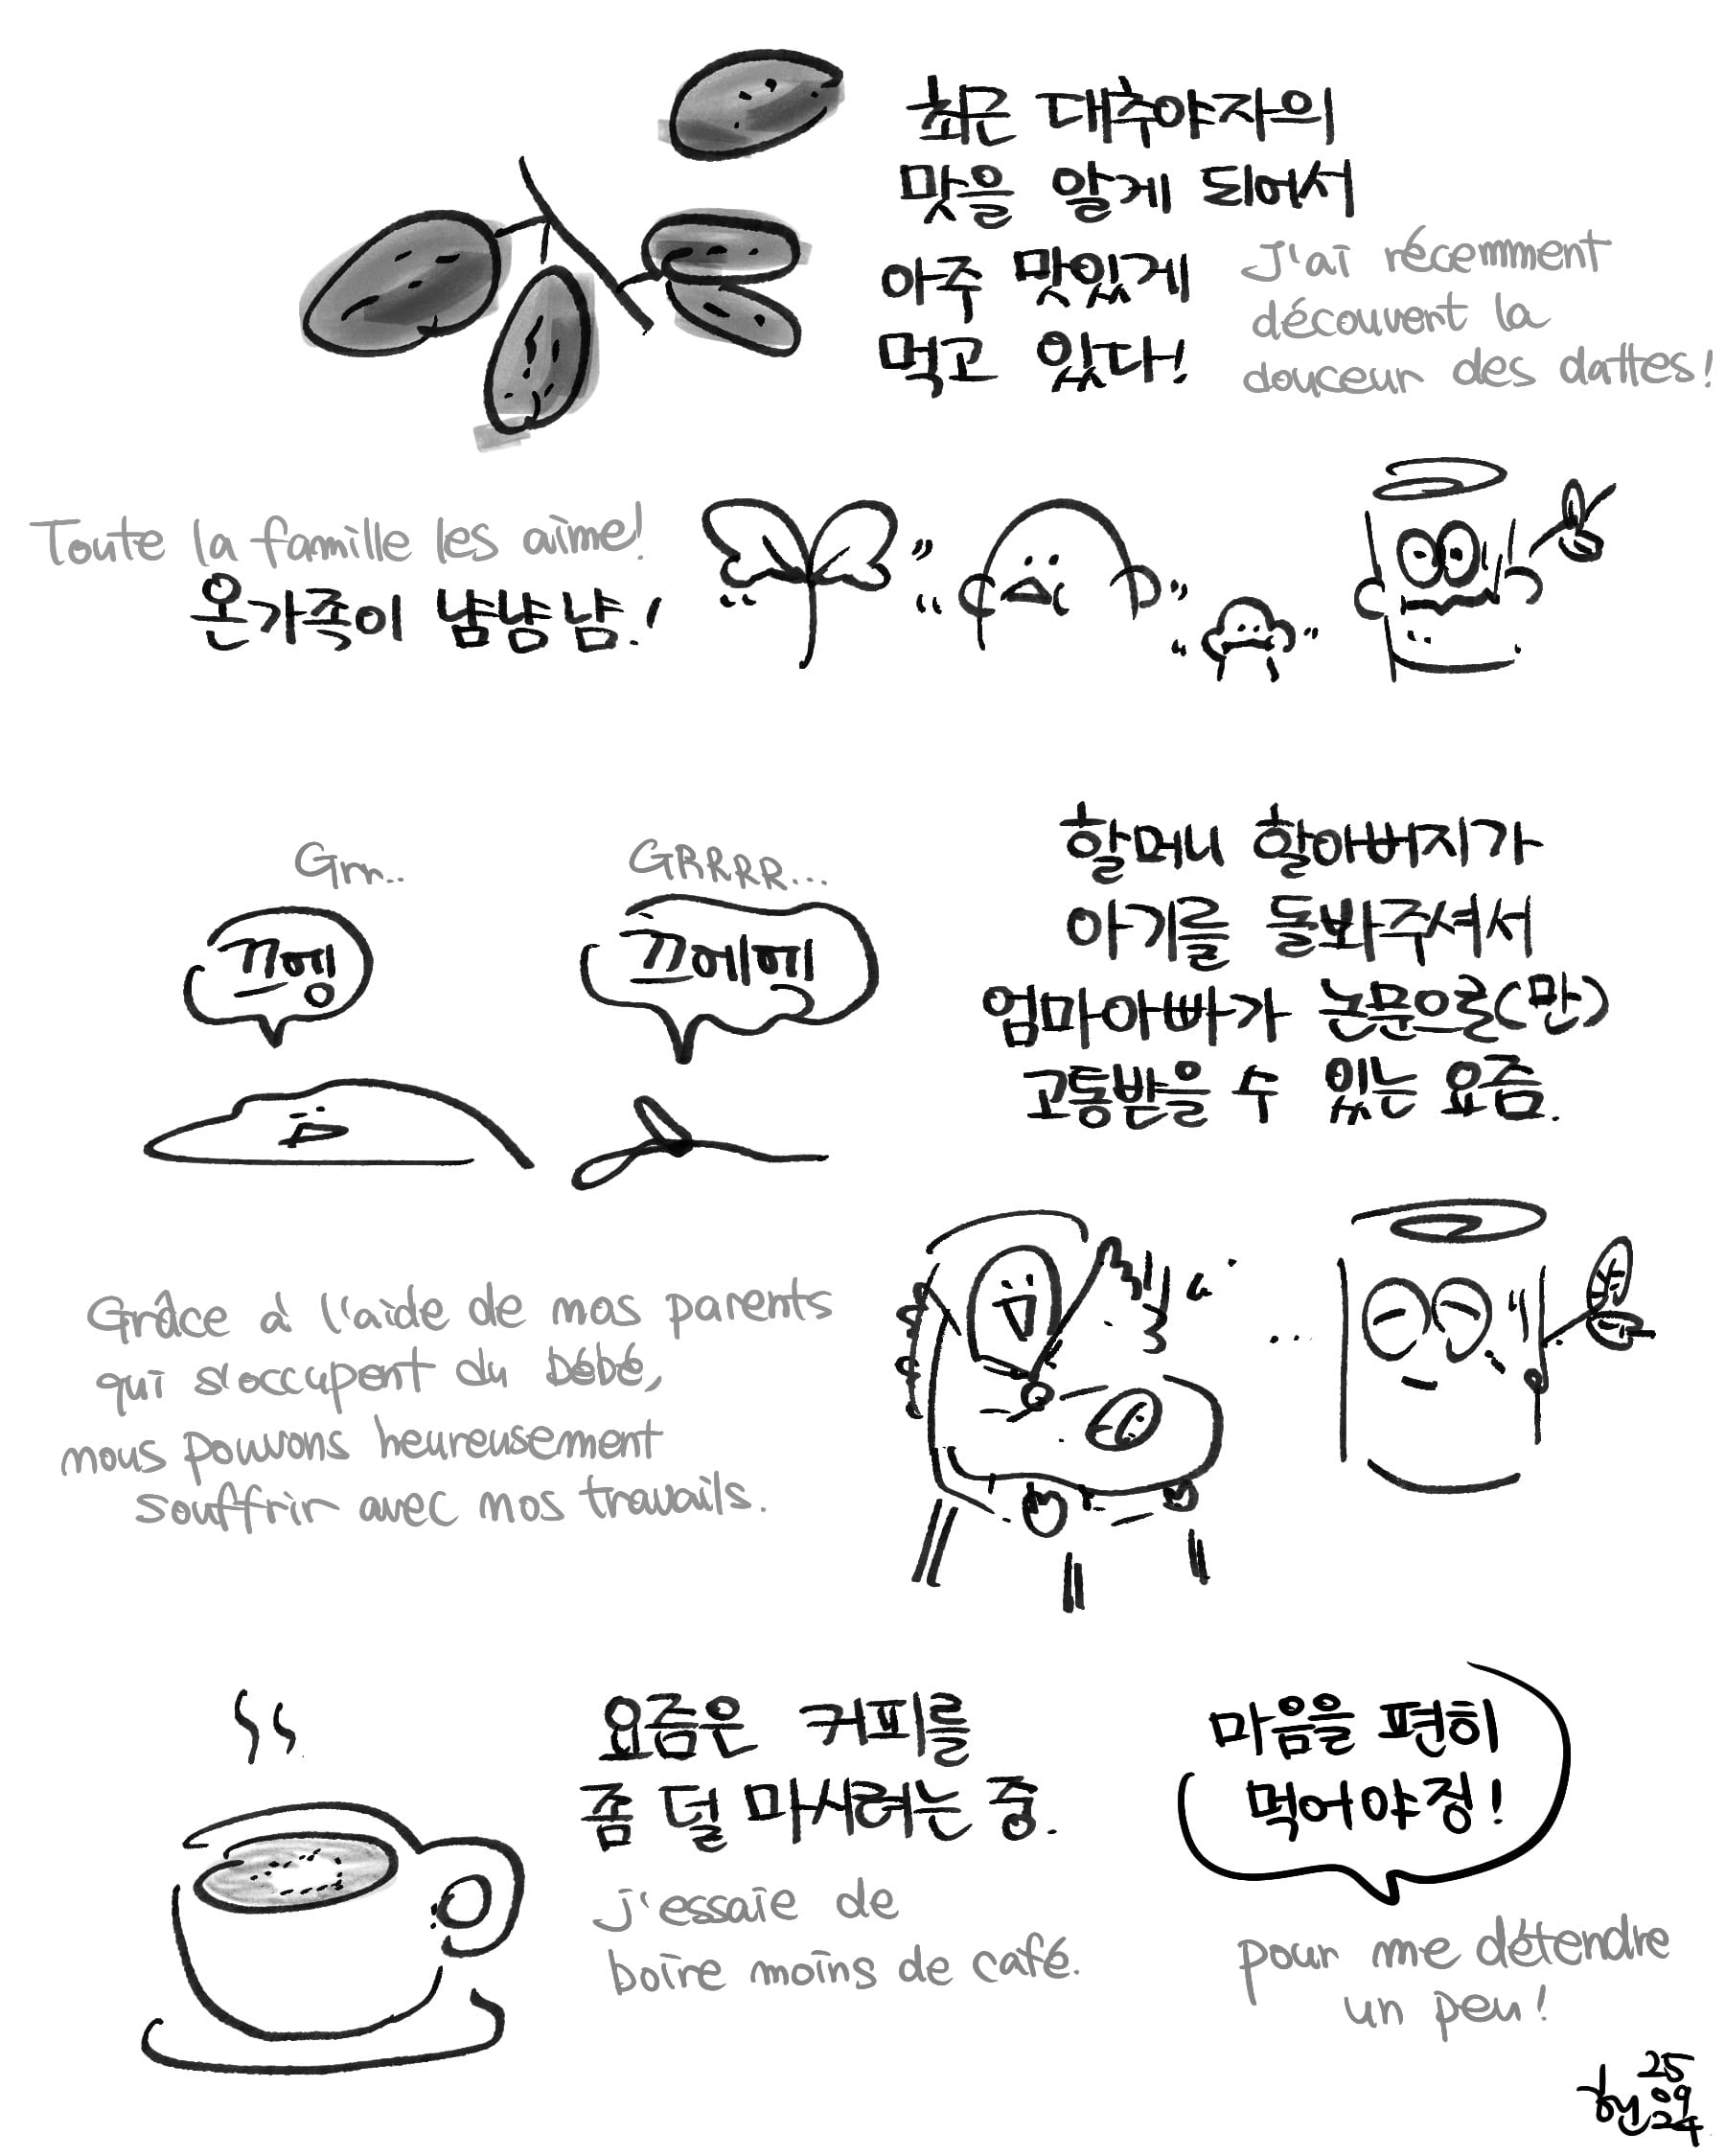 최근 대추야자의
맛을 알게 되어서
아주 맛있게
먹고 있다!
J'ai récemment
découvert la
douceur des dattes!
Toute la famille les aime!
온가족이 냠냠냠!
Grr..
끄엥
GRRRR...
끄에엑
할머니 할아버지가
아기를 돌봐주셔서
엄마아빠가 논문으로(만)
고통받을 수 있는 요즘.
Grâce à l'aide de mos parents
qui s'occupent du bébé,
nous pouvons heureusement
souffrir avec mos travails.
요즘은 커피를
좀 덜 마시려는 중.
J'essaie de
boire moins de café.
마음을 편히
먹어야징!
pour me détendre
un peu!
25
09
24